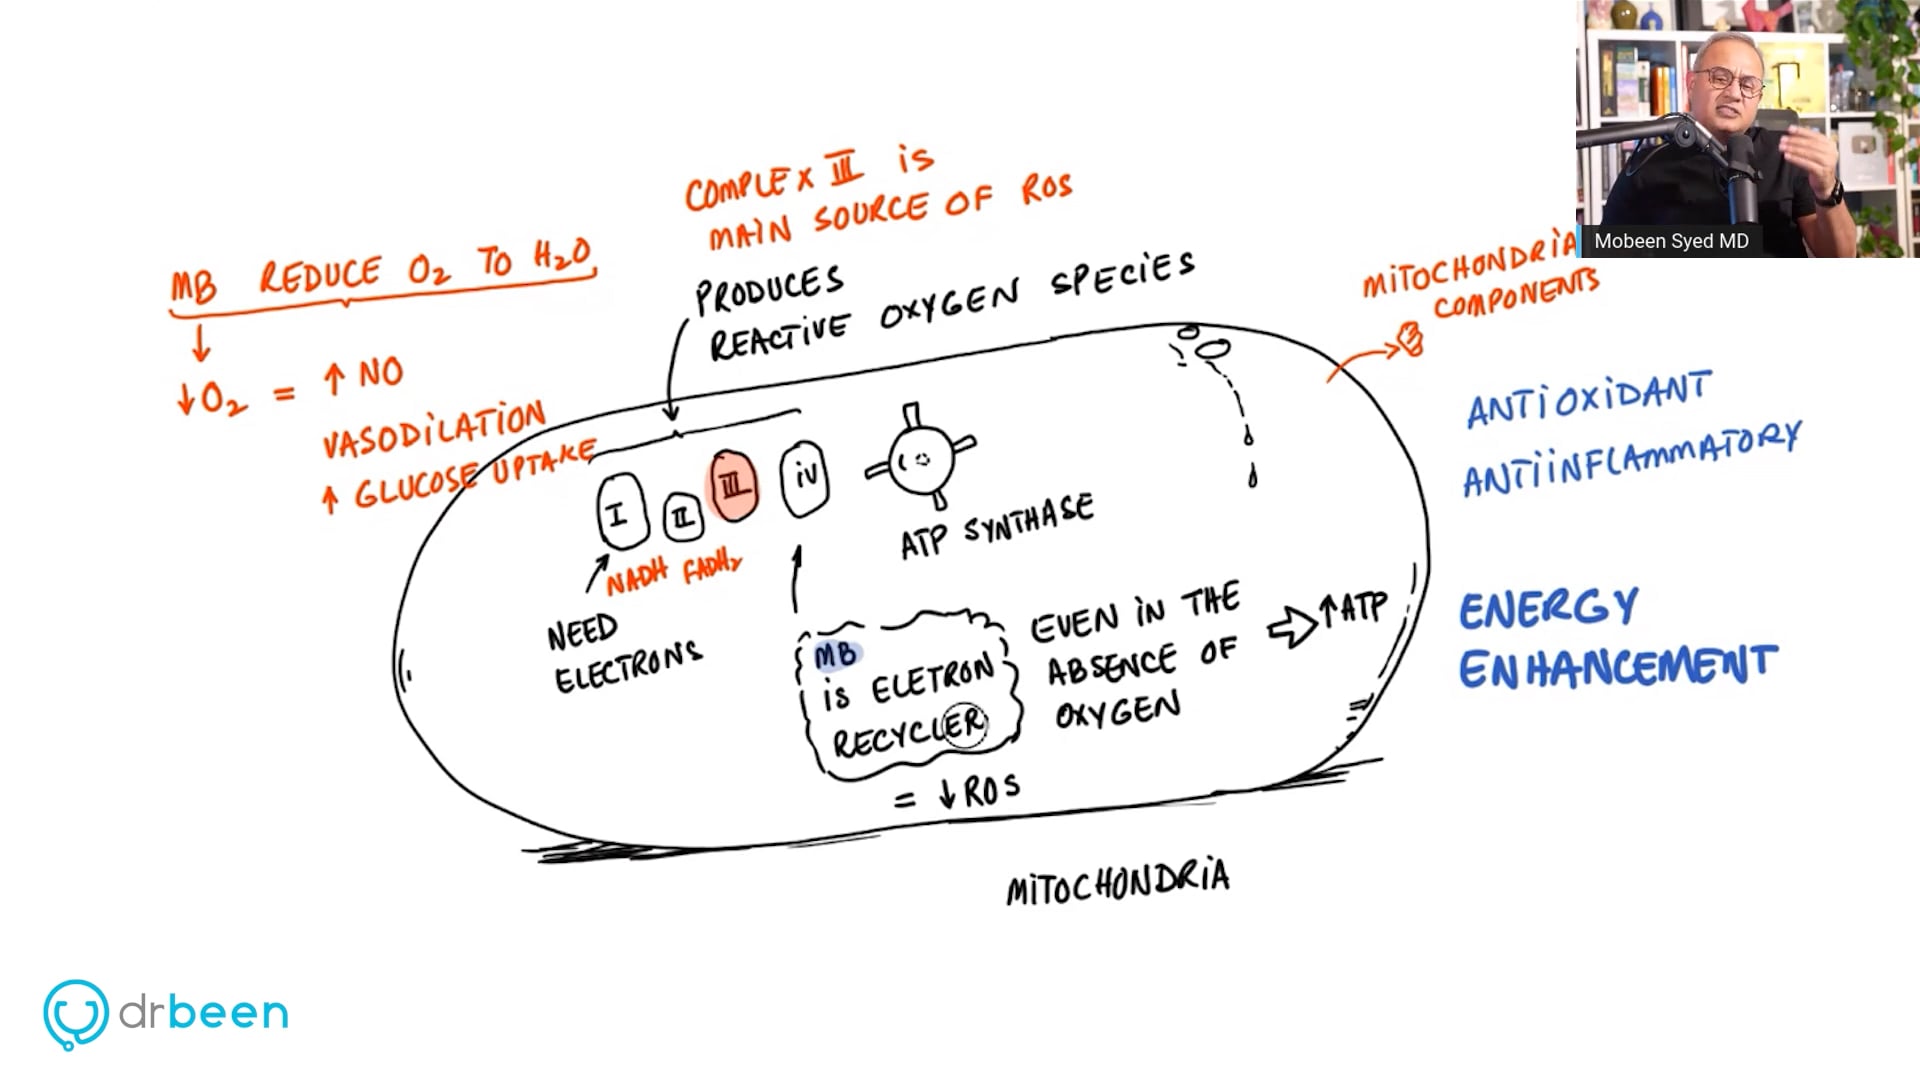 Mobeen Syed MD
COMPLEX III is
MAIN SOURCE OF ROS
MB REDUCE O₂ TO H₂O
↓O₂ = ↑ NO
VASODILATION
↑ GLUCOSE UPTAKE
PRODUCES
REACTIVE OXYGEN SPECIES
MITOCHONDRIA
COMPONENTS
ANTIOXIDANT
ANTIINFLAMMATORY
I II III iv
NADH FADH₂
NEED
ELECTRONS
ATP SYNTHASE
MB
is ELETRON
RECYCLER
= ↓ROS
EVEN IN THE
ABSENCE OF
OXYGEN
⇒ ↑ATP
ENERGY
ENHANCEMENT
MITOCHONDRIA
drbeen